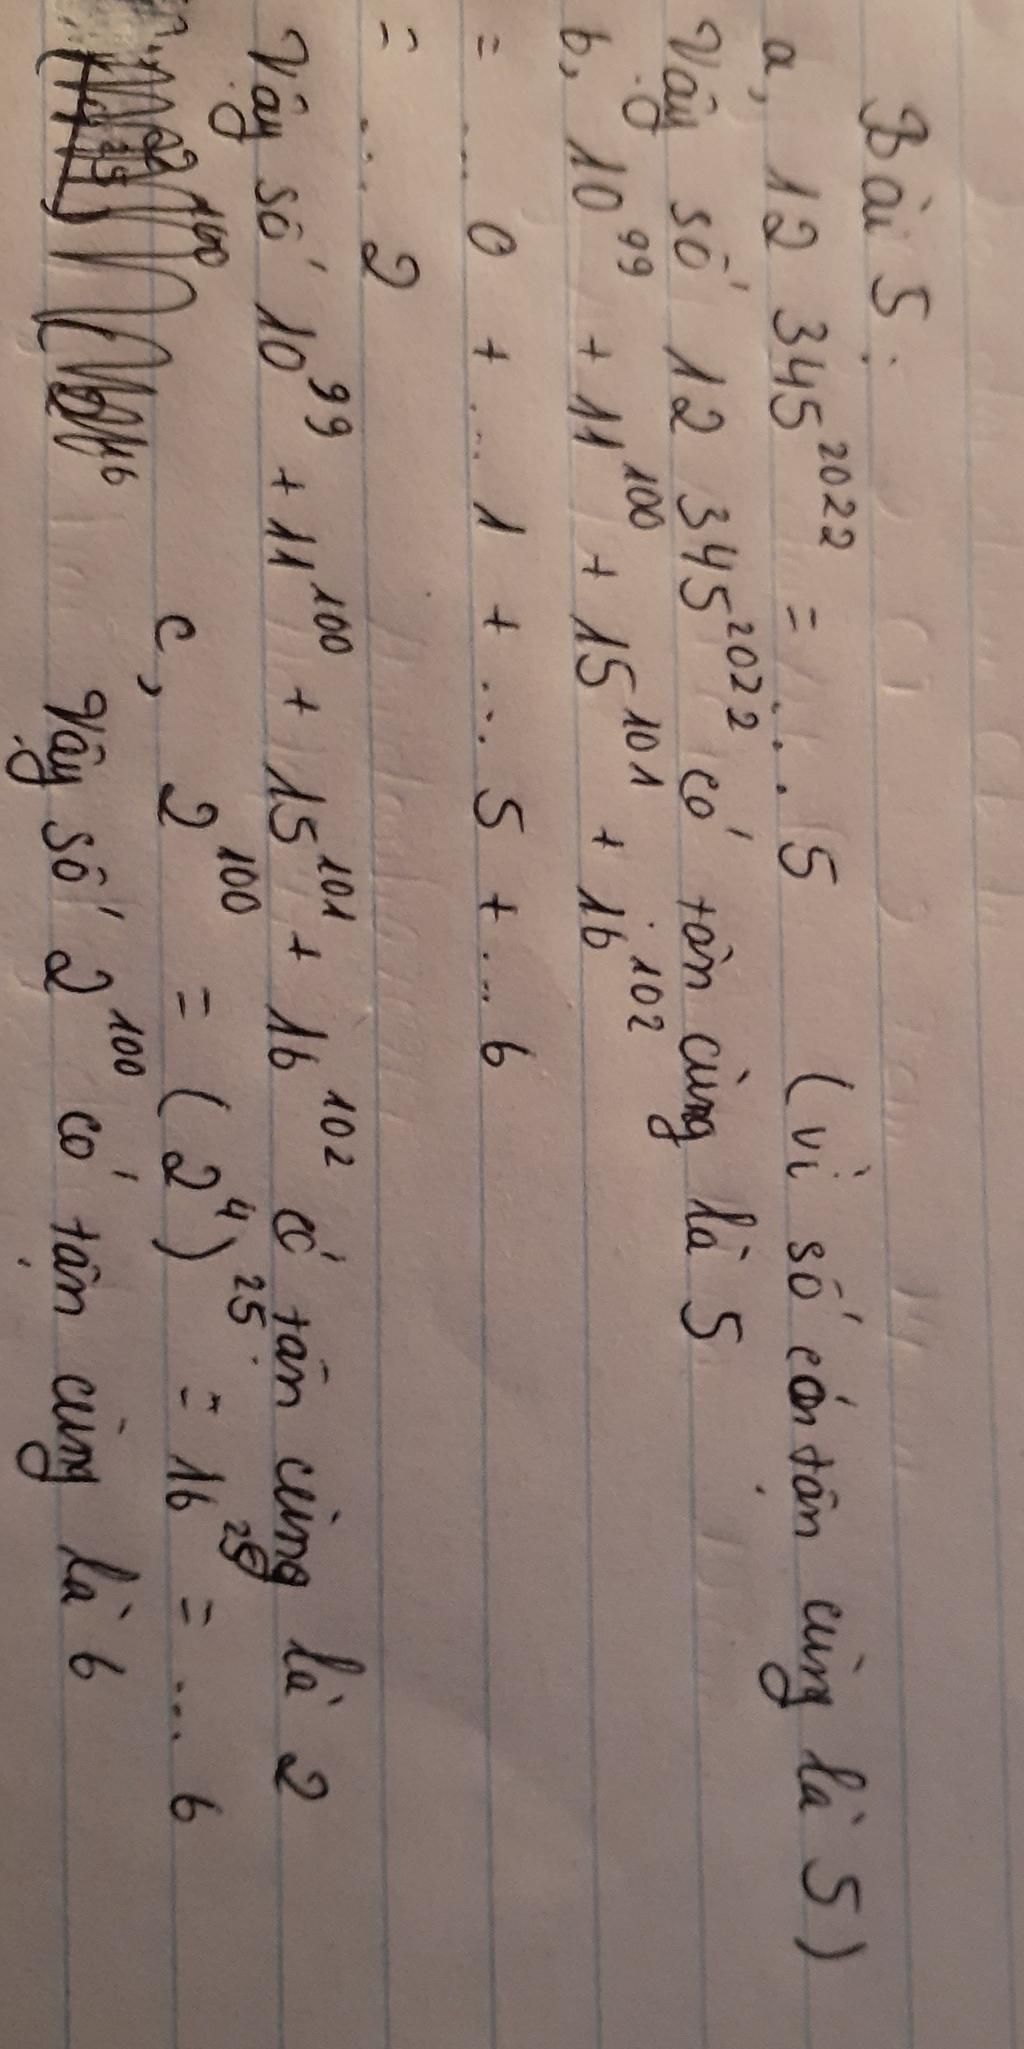 Bài 5:
a, 12 345²⁰²² = ... 5 (vì số có tận cùng là 5)
Vậy số 12 345²⁰²² có tận cùng là 5
b, 10⁹⁹ + 11¹⁰⁰ + 15¹⁰¹ + 16¹⁰²
= ... 0 + ... 1 + ... 5 + ... 6
= ... 2
Vậy số 10⁹⁹ + 11¹⁰⁰ + 15¹⁰¹ + 16¹⁰² có tận cùng là 2
c, 2¹⁰⁰ = (2⁴)²⁵ = 16²⁵ = ... 6
Vậy số 2¹⁰⁰ có tận cùng là 6